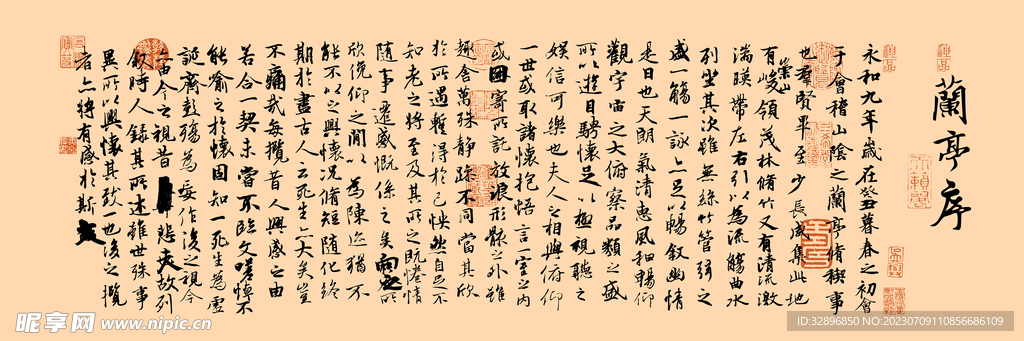 蘭亭序
永和九年歲在癸丑暮春之初會
于會稽山陰之蘭亭脩稧事
也羣賢畢至少長咸集此地
有崇山峻領茂林脩竹又有清流激
湍暎帶左右引以為流觴曲水
列坐其次雖無絲竹管弦之
盛一觴一詠亦足以暢敘幽情
是日也天朗氣清惠風和暢仰
觀宇宙之大俯察品類之盛
所以遊目騁懷足以極視聽之
娛信可樂也夫人之相與俯仰
一世或取諸懷抱悟言一室之內
或因寄所託放浪形骸之外雖
趣舍萬殊靜躁不同當其欣
於所遇暫得於己怏然自足不
知老之將至及其所之既惓情
隨事遷感慨係之矣向之所
欣俛仰之閒以為陳迹猶不
能不以之興懷況脩短隨化終
期於盡古人云死生亦大矣豈
不痛哉每攬昔人興感之由
若合一契未嘗不臨文嗟悼不
能喻之於懷固知一死生為虛
誕齊彭殤為妄作後之視今
亦由今之視昔悲夫故列
敘時人錄其所述雖世殊事
異所以興懷其致一也後之攬
者亦將有感於斯文
昵享网 www.nipic.cn
ID:32896850 NO:20230709110856686109